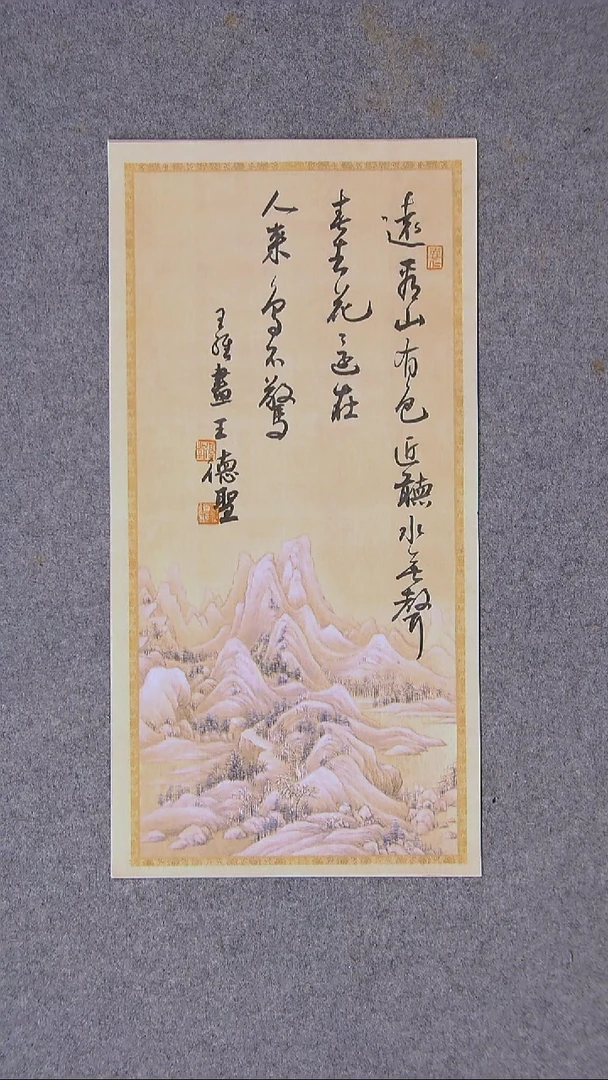 遠看山有色近聽水無聲
春去花〻還在
人來鳥不驚
王維畫王德聖